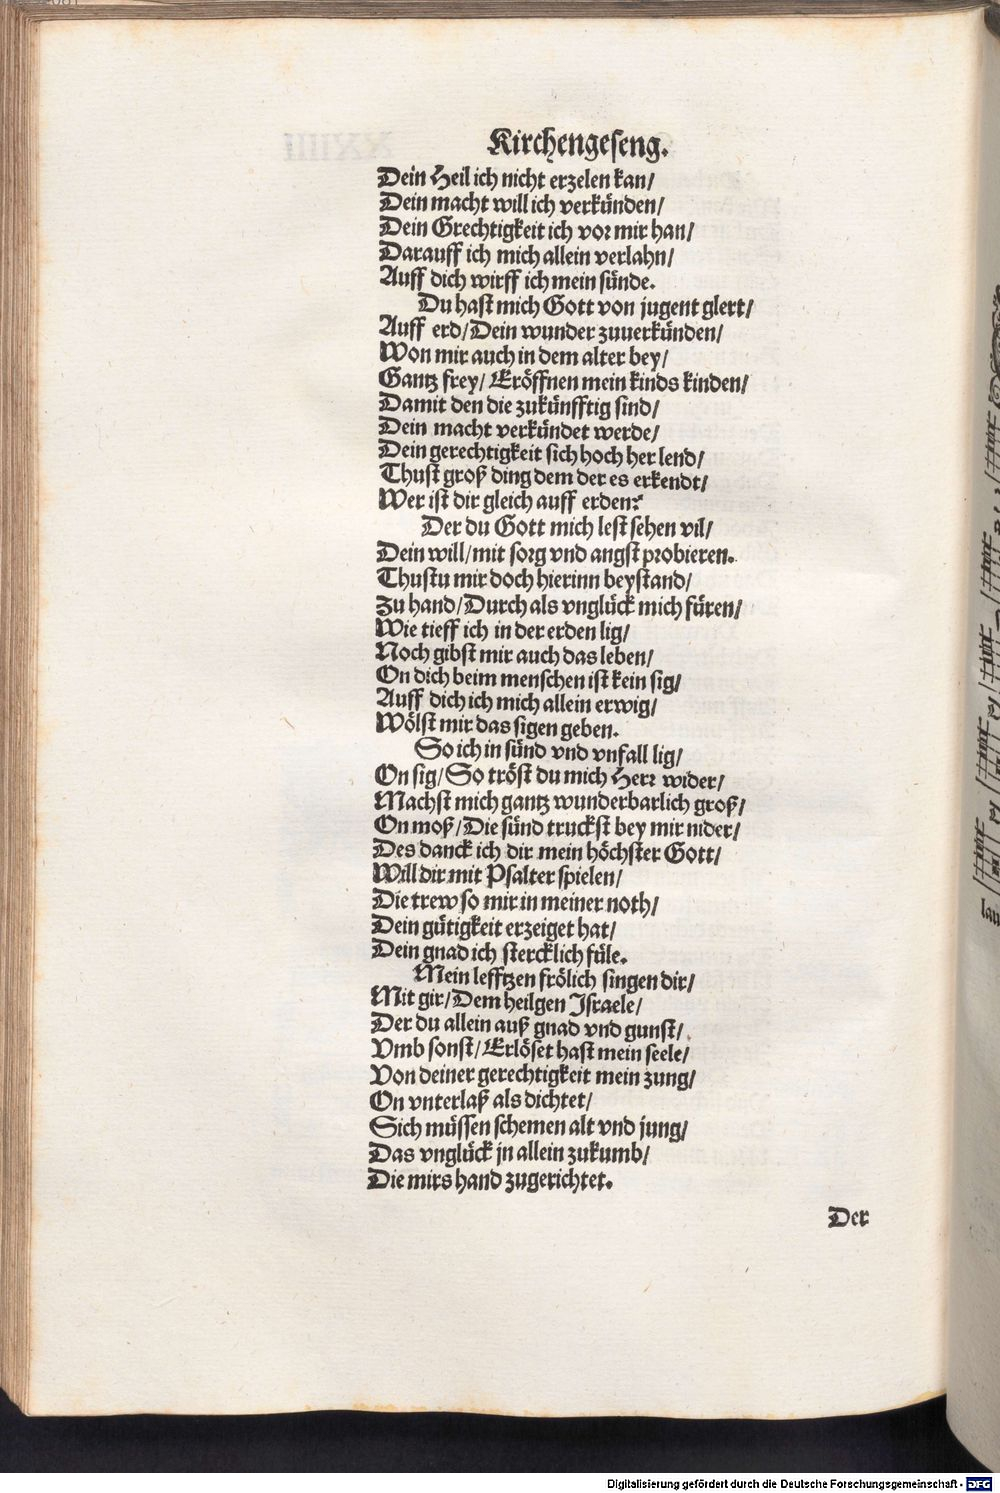 Kirchengeseng.
Dein Heil ich nicht erzelen kan/
Dein macht will ich verkünden/
Dein Grechtigkeit ich vor mir han/
Darauff ich mich allein verlahn/
Auff dich wirff ich mein sünde.
Du hast mich Gott von jugent glert/
Auff erd/ Dein wunder zuuerkünden/
Won mir auch in dem alter bey/
Gantz frey/ Eröffnen mein kinds kinden/
Damit den die zukünfftig sind/
Dein macht verkündet werde/
Dein gerechtigkeit sich hoch her lend/
Thust groß ding dem der es erkendt/
Wer ist dir gleich auff erden?
Der du Gott mich lest sehen vil/
Dein will/ mit sorg vnd angst probieren.
Thustu mir doch hierinn beystand/
Zu hand/ Durch als vnglück mich füren/
Wie tieff ich in der erden lig/
Noch gibst mir auch das leben/
On dich beim menschen ist kein sig/
Auff dich ich mich allein erwig/
Wölst mir das sigen geben.
So ich in sünd vnd vnfall lig/
On sig/ So tröst du mich Herr wider/
Machst mich gantz wunderbarlich groß/
On moß/ Die sünd truckst bey mir nider/
Des danck ich dir mein höchster Gott/
Will dir mit Psalter spielen/
Die trew so mir in meiner noth/
Dein gütigkeit erzeiget hat/
Dein gnad ich stercklich füle.
Mein lefftzen frölich singen dir/
Mit gir/ Dem heilgen Israele/
Der du allein auß gnad vnd gunst/
Vmb sonst/ Erlöset hast mein seele/
Von deiner gerechtigkeit mein zung/
On vnterlaß als dichtet/
Sich müssen schemen alt vnd jung/
Das vnglück jn allein zukumb/
Die mirs hand zugerichtet.
Der
Digitalisierung gefördert durch die Deutsche Forschungsgemeinschaft - DFG